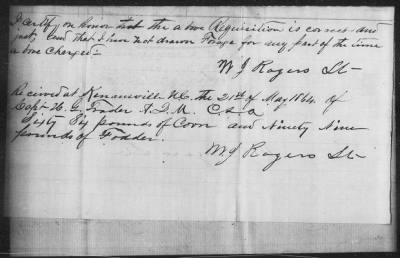 I certify on honor that the above Requisition is correct and
just, and that I have not drawn Forage for any part of the time
above charged
W J Rogers Lt
Recived at Kenansville N.C. the 21st of May 1864. of
Capt H. G. A.Q.M. C.S.A
Sixty Six pounds of Corn and Ninety Nine
pounds of Fodder.
W J Rogers Lt